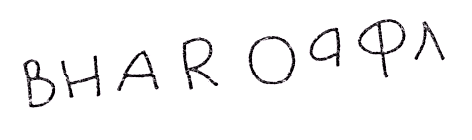 BHAR OqΦΛ